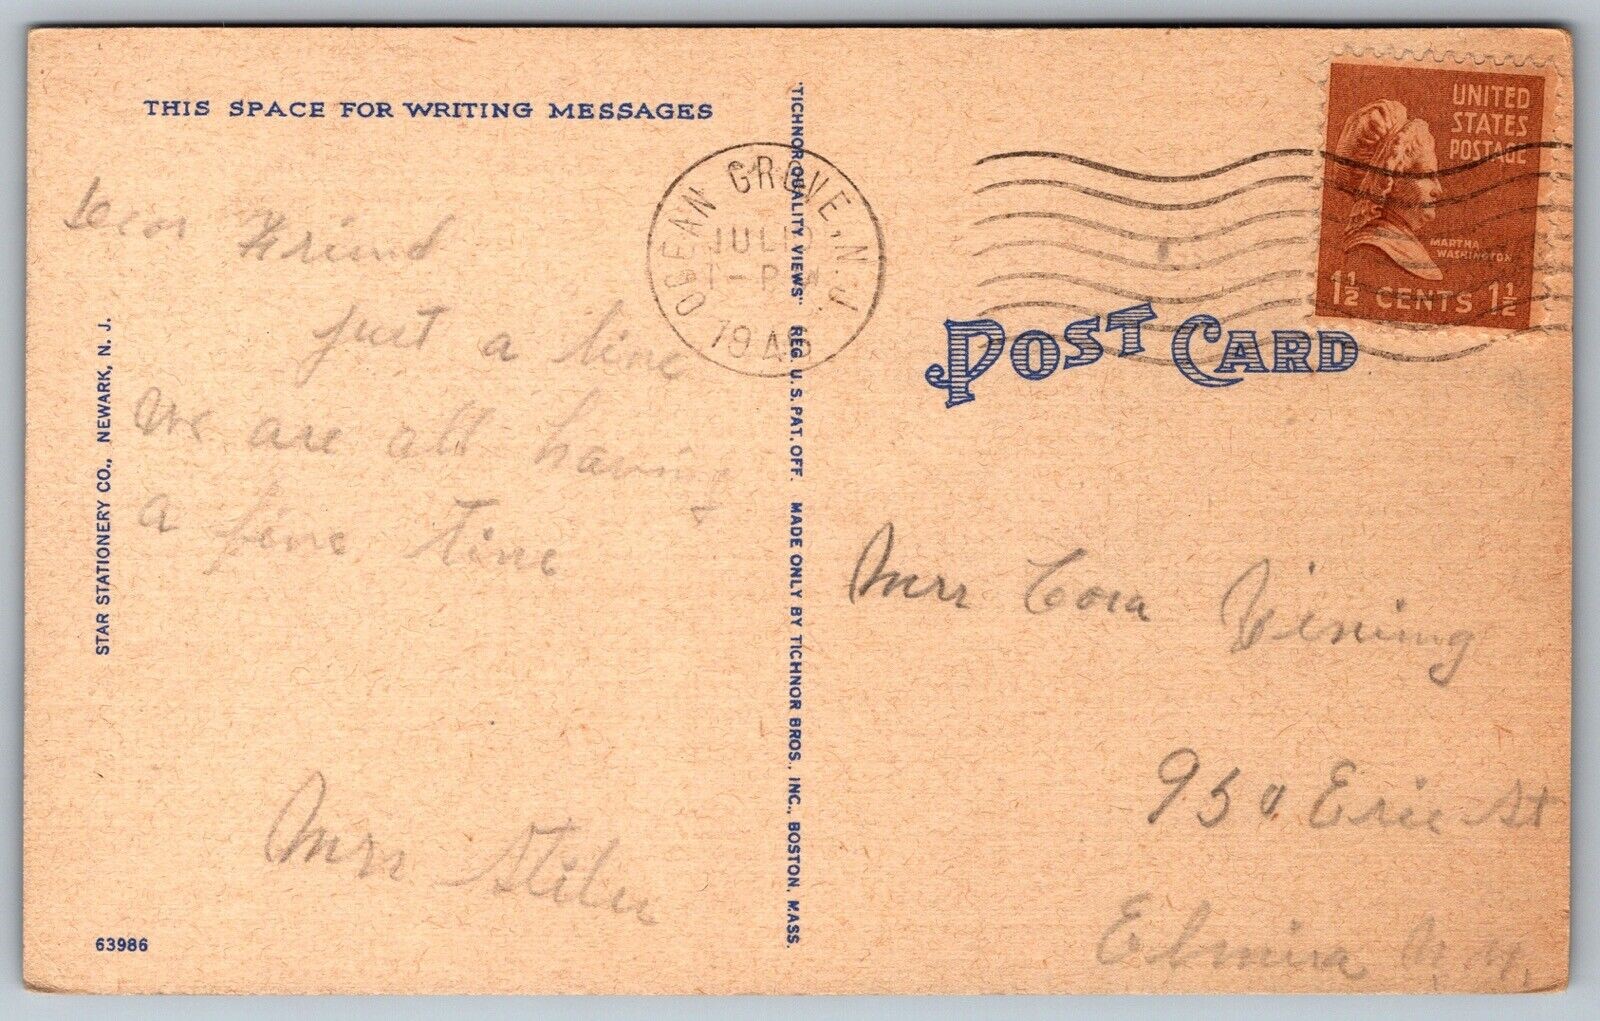 THIS SPACE FOR WRITING MESSAGES
Dear Friend
just a line
We are all having
a fine time
Mrs Stiles
STAR STATIONERY CO., NEWARK, N. J.
63986
"TICHNOR QUALITY VIEWS" REG. U. S. PAT. OFF. MADE ONLY BY TICHNOR BROS., INC., BOSTON, MASS.
OCEAN GROVE, N.J.
JUL
1-PM
194
UNITED
STATES
POSTAGE
MARTHA
WASHINGTON
1½ CENTS 1½
POST CARD
Mrs Cora Vining
950 Erie St
Elmira N.Y.